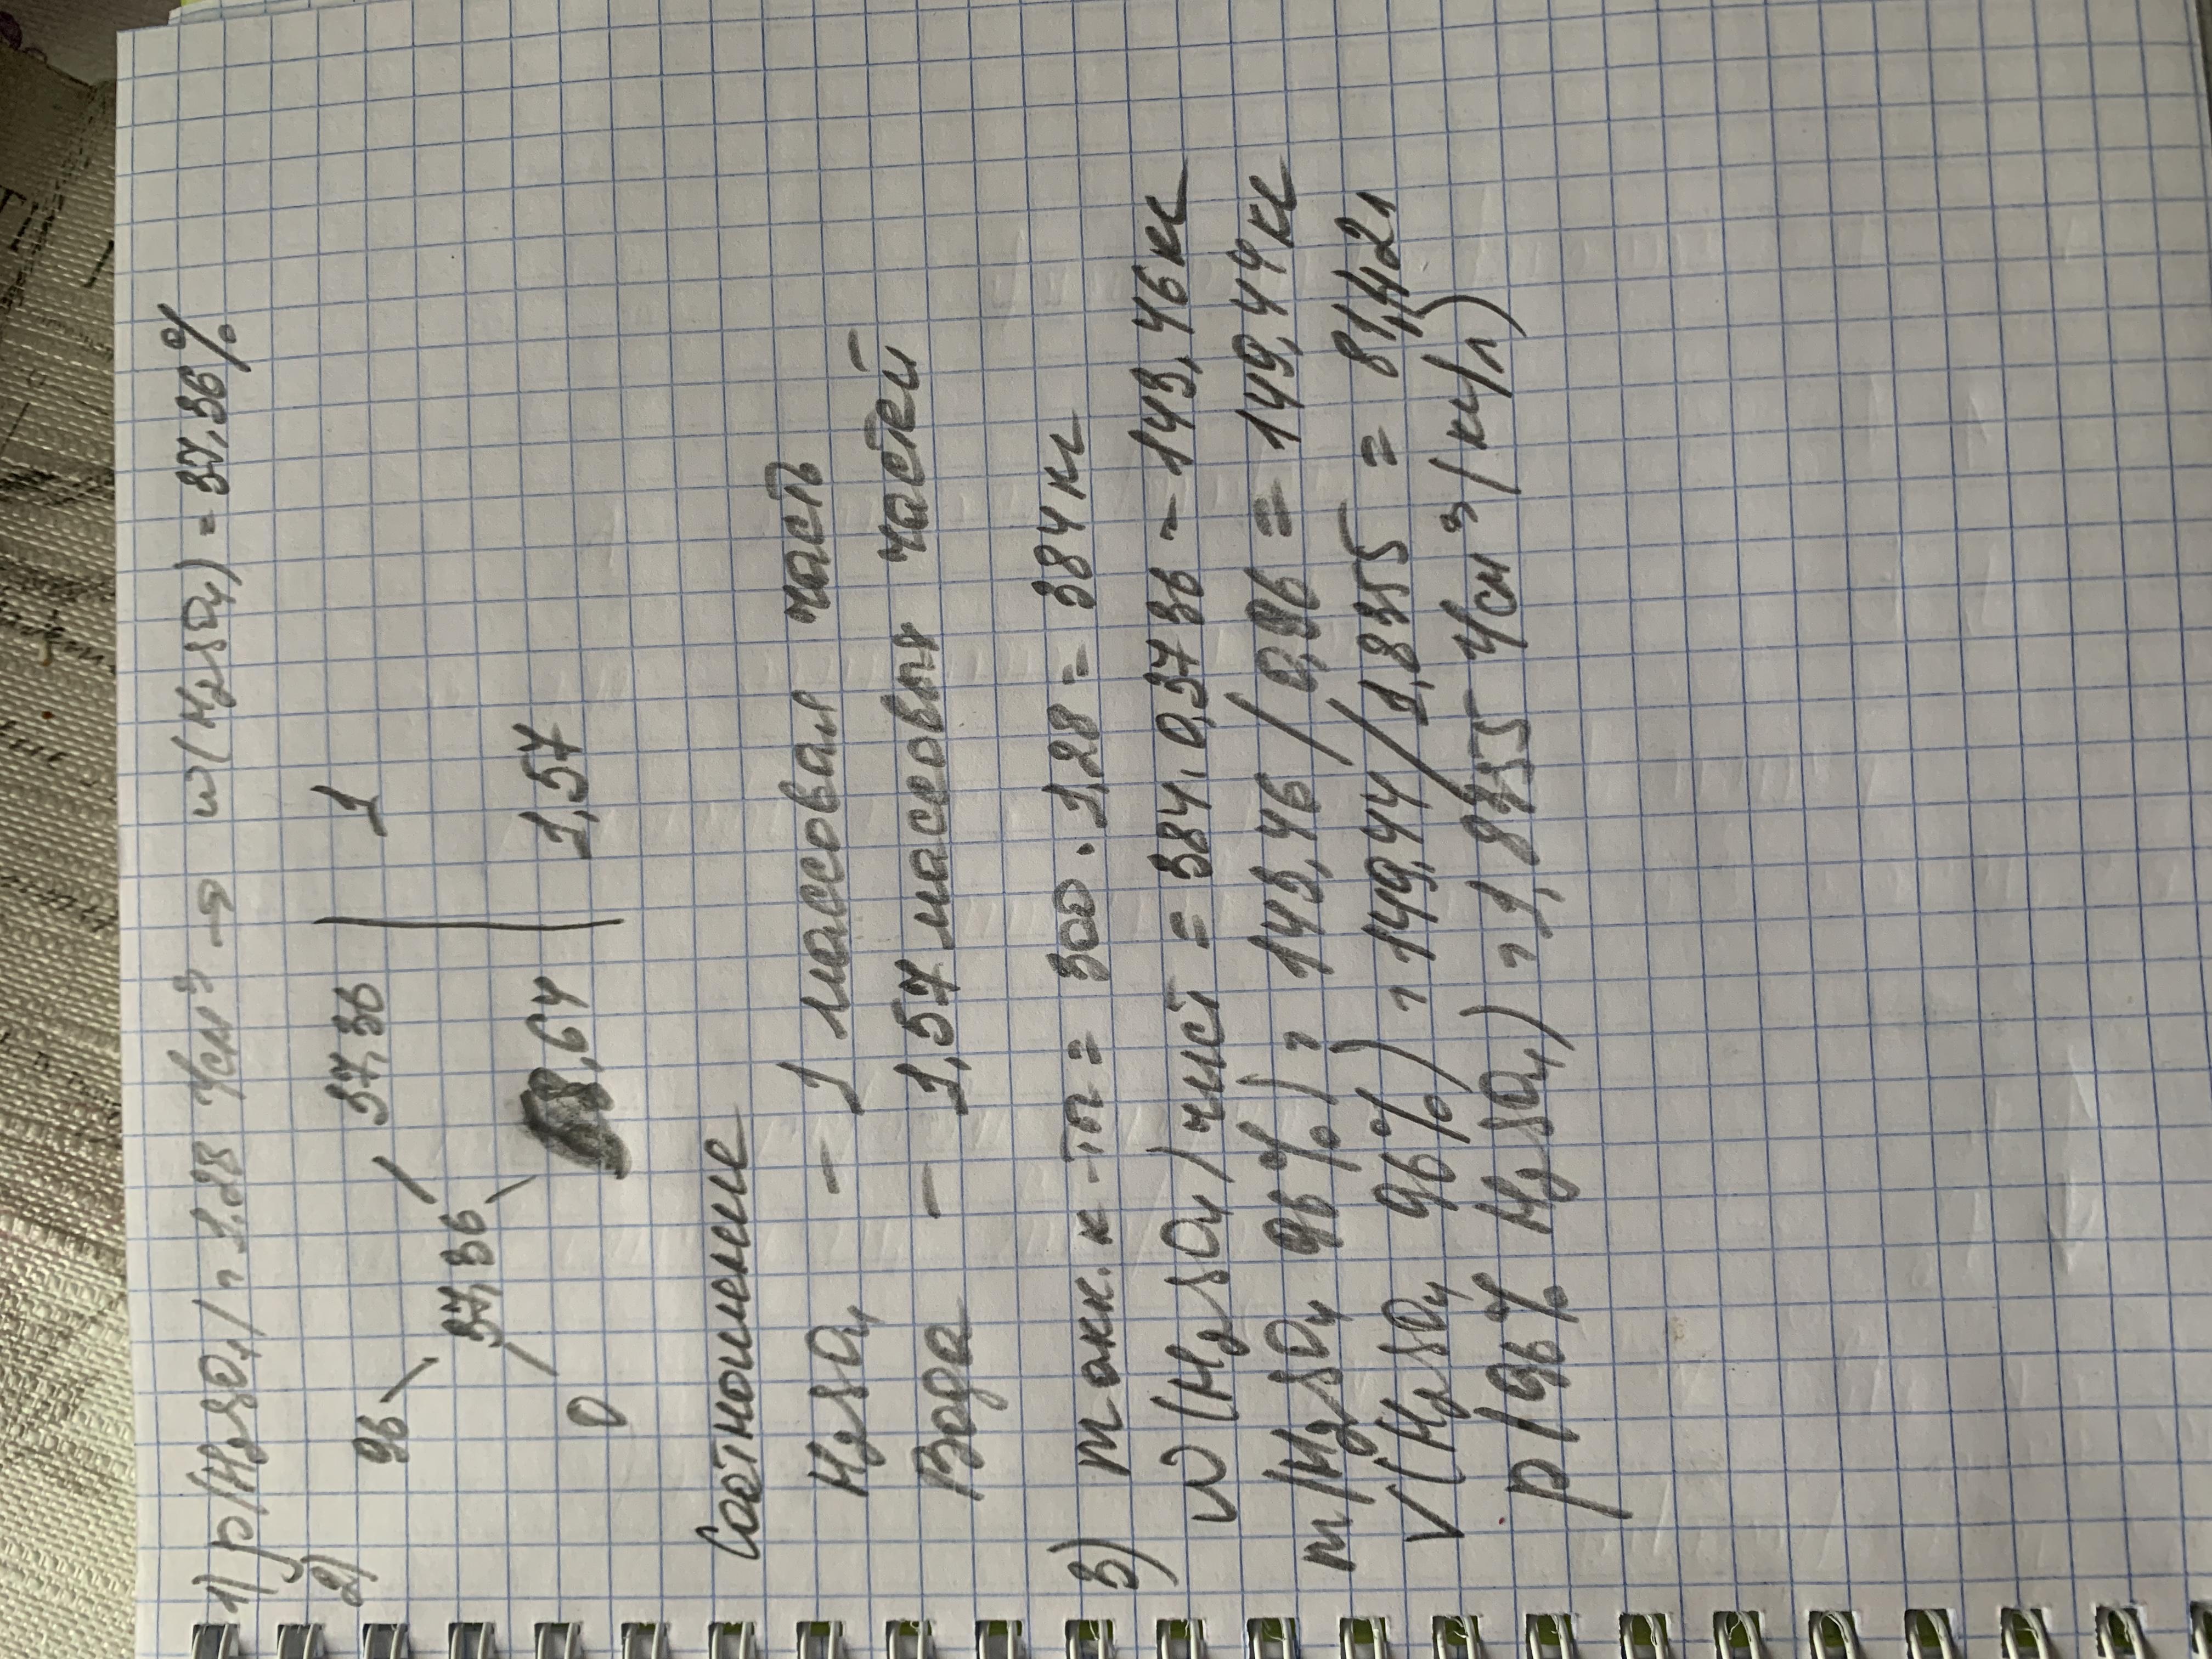 1) p(H₂SO₄) = 1.28 г/см³ → w(H₂SO₄) = 37.36%
2)
96 37,36 1
37,36
0 58,64 1,57
Соотношение
H₂SO₄ - 1 массовая часть
Вода - 1,57 массовых частей
3) m акк. к-ты = 300 · 1,28 = 384 кг
w(H₂SO₄) чист = 384 · 0,3736 - 143,46 кг
m(H₂SO₄ 96%) = 143,46 / 0,96 = 149,44 кг
V(H₂SO₄ 96%) = 149,44 / 1,8355 = 81,42 л
p(96% H₂SO₄) = 1,8355 г/см³ (кг/л)